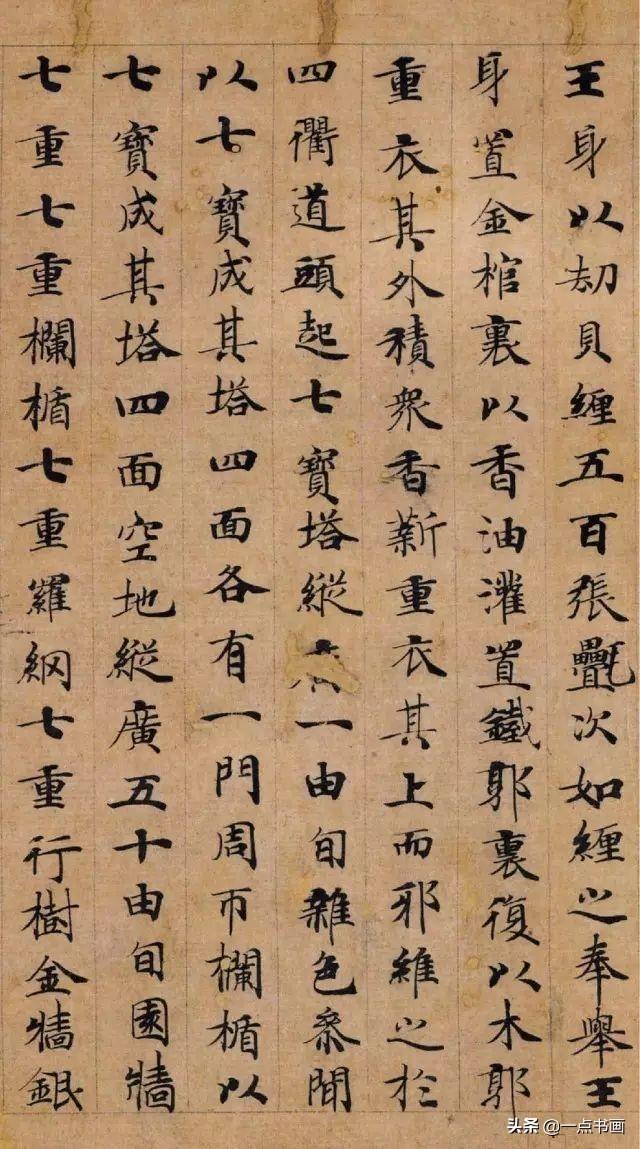 王身以刧貝纏五百張㲲次如纏之奉舉王
身置金棺裏以香油灌置鐵郭裏復以木郭
重衣其外積衆香薪重衣其上而邪維之於
四衢道頭起七寶塔縱一由旬雜色叅間
以七寶成其塔四面各有一門周帀欄楯以
七寶成其塔四面空地縱廣五十由旬園牆
七重七重欄楯七重羅網七重行樹金牆銀
头条 @一点书画